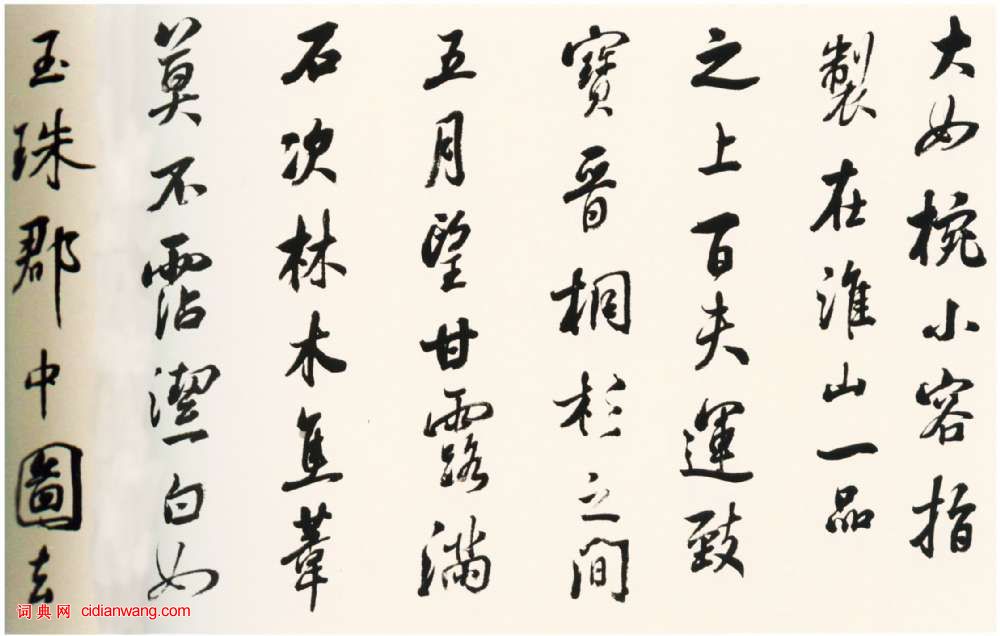 大如椀小容指
製在淮山一品
之上百夫運致
寶晉桐杉之間
五月望甘露滿
石次林木焦葦
莫不霑潔白如
玉珠郡中圖去
词典网 cidianwang.com